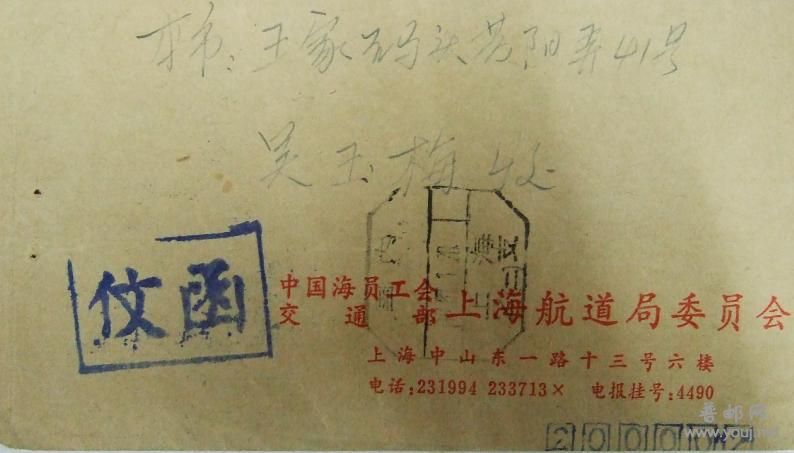 本市：王家码头黄阳弄41号
吴玉梅 收
仗函
中国海员工会
交通部
上海航道局委员会
上海中山东一路十三号六楼
电话:231994 233713× 电报挂号:4490
普邮网
www.youj.net